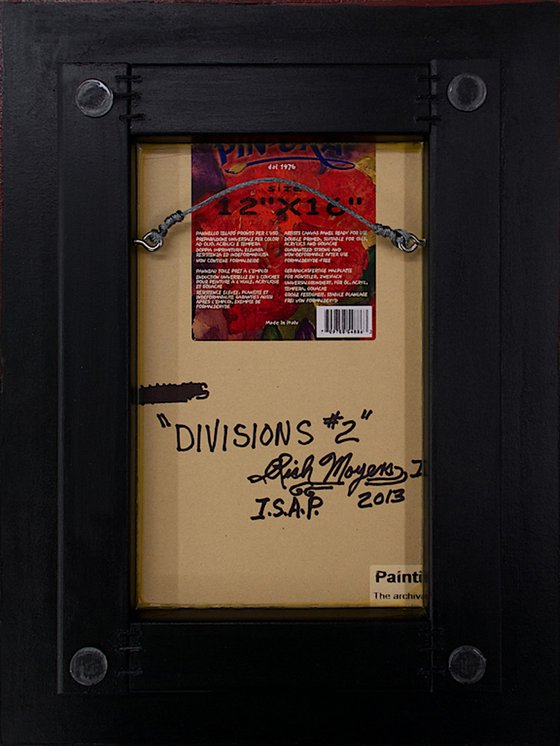 dal 1976
SIZE
12"X16"
PANNELLO TELATO PRONTO PER L'USO
PREPARAZIONE UNIVERSALE PER COLORI
AD OLIO, ACRILICI E TEMPERA
DOPPIA IMPRIMITURA, ELEVATA
RESISTENZA ED INDEFORMABILITÀ
NON CONTIENE FORMALDEIDE
PANNEAU TOILÉ PRÊT À L'EMPLOI
ENDUCTION UNIVERSELLE EN 2 COUCHES
POUR PEINTURE À L'HUILE, ACRYLIQUE
ET GOUACHE
RÉSISTENCE ÉLEVÉE, PLANÉITÉ ET
INDÉFORMABILITÉ GARANTIES AUSSI
APRÈS L'EMPLOI. EXEMPTE DE
FORMALDEHYDE
ARTISTS CANVAS PANEL READY FOR USE
DOUBLE PRIMED, SUITABLE FOR OILS,
ACRYLICS AND GOUACHE
GUARANTEED STRONG AND
NON-DEFORMABLE AFTER USE
FORMALDEHYDE-FREE
GEBRAUCHSFERTIGE MALPLATTE
FÜR KÜNSTLER, ZWEIFACH
UNIVERSALGRUNDIERT, FÜR ÖL, ACRYL,
TEMPERA, GOUACHE
GROßE FESTIGKEIT, STABILE PLANLAGE
FREI VON FORMALDEHYD
Made in Italy
"DIVISIONS #2"
Rich Moyers I
I.S.A.P. 2013
Painti
The archiva